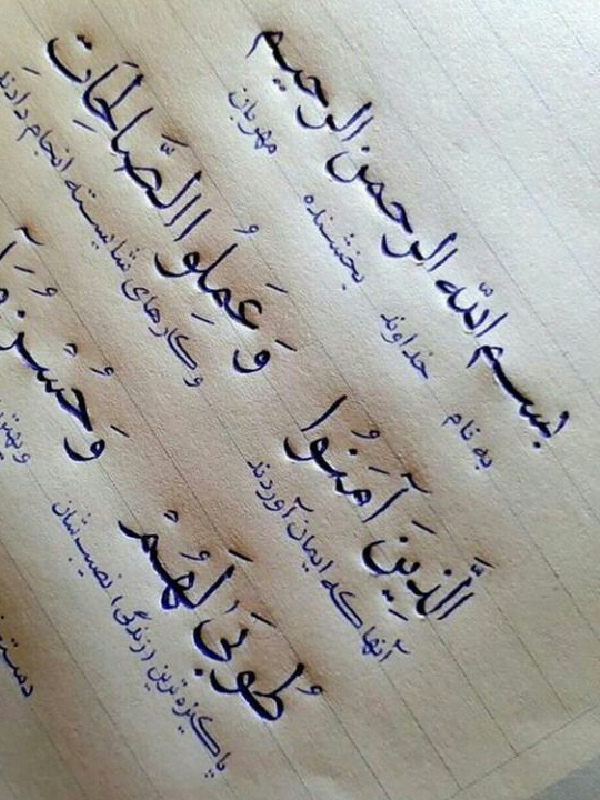 بسم الله الرحمن الرحیم
به نام خداوند بخشنده مهربان
الَّذِينَ آمَنُوا وَعَمِلُوا الصَّالِحَاتِ
آنها که ایمان آوردند و کارهای شایسته انجام دادند
طُوبَىٰ لَهُمْ وَحُسْنُ
پاکیزه‌ترین (زندگی) نصیب‌شان